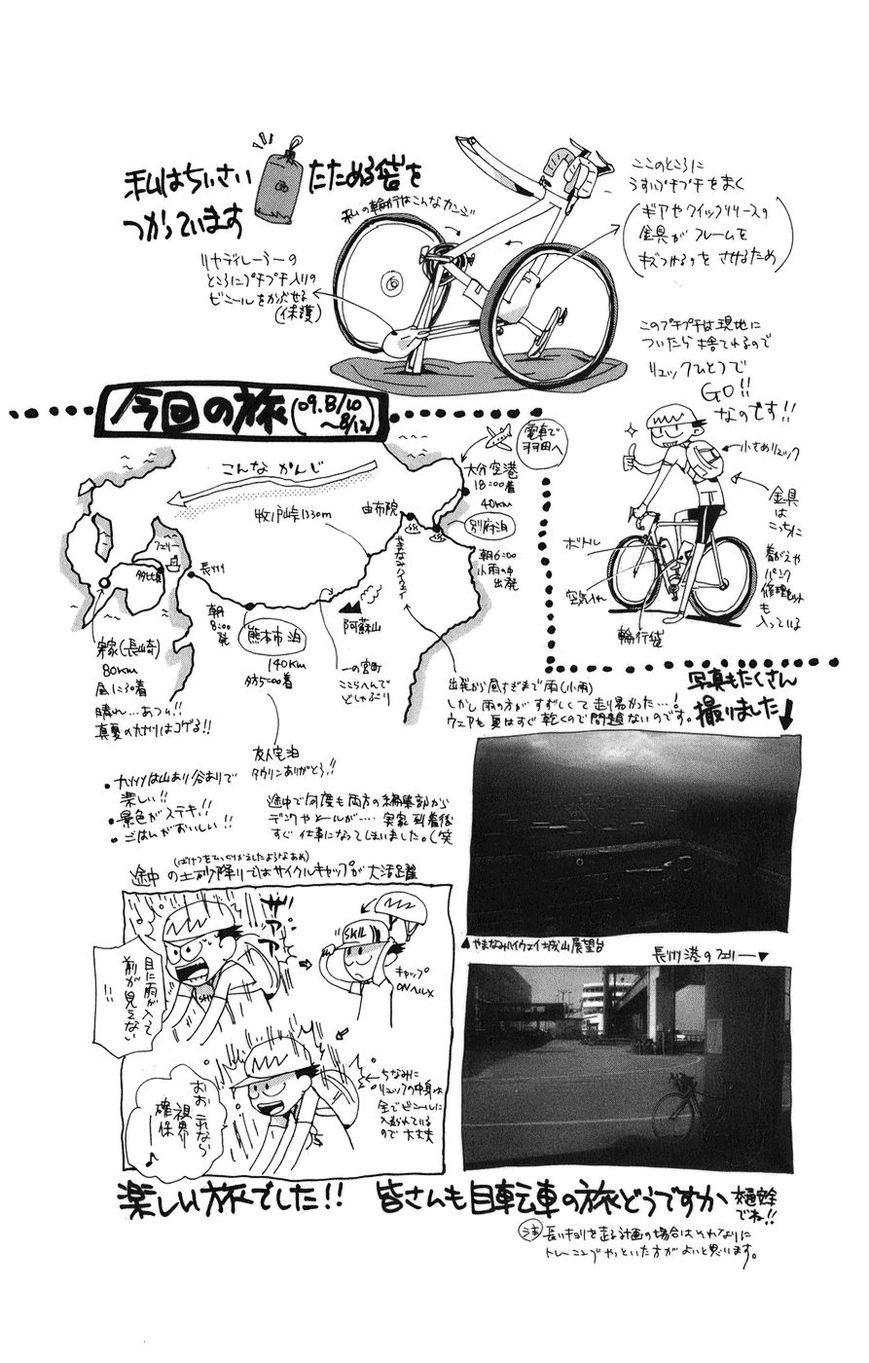 私はちいさい たためる袋を
つかっています
私の輪行はこんなカンジ
リヤディレーラーの
ところにプチプチ入りの
ビニールをかぶせる
(保護)
ここのところに
うすいプチプチをまく
(ギアやクイックリリースの
金具がフレームを
キズつけるのをさけるため)
このプチプチは現地に
ついたら捨てれるので
リュックひとつで
GO!!
なのです!!
小さめリュック
金具
は
こっちに
着がえや
パンク
修理セット
も
入っている
ボトル
空気入れ
輪行袋
今回の旅(09.8/10
〜8/12)
電車で
羽田へ
大分空港
18:00着
40km
別府泊
朝6:00
小雨の中
出発
こんな かんじ
由布院
牧ノ戸峠1330m
やまなみハイウェイ
フェリー
多比良
長洲
朝
8:00
発
熊本市泊
140km
夕方5:00着
阿蘇山
一の宮町
ここらへんで
どしゃぶり
実家(長崎)
80km
昼に30着
晴れ…あつい!!
真夏の九州はコゲる!!
出発から昼すぎまで雨(小雨)
しかし雨の方がすずしくて走り易かった…!
ウェアも夏はすぐ乾くので問題ないのです。
友人宅泊
タウリンありがとう!!
・九州は山あり谷ありで
楽しい!!
・景色がステキ!!
・ごはんがおいしい!!
途中で何度も両方の編集部から
デンワやメールが…… 実家到着後
すぐ仕事になってしまいました。(笑
写真もたくさん
撮りました
▲やまなみハイウェイ城山展望台
長洲港のフェリー▼
(ばけつをひっくりかえしたようなあめ)
途中の土砂降りではサイクルキャップが大活躍
ザアアア
目に雨が入って
前が見えない
!!
SKIL
キャップ
ONヘルメ
おおこれなら
視界
確保♪
ちなみに
リュックの中身は
全てビニールに
入れられている
ので大丈夫
楽しい旅でした!! 皆さんも自転車の旅どうですか
交通安全
でね!!
長いキョリを走る計画の場合はそれなりに
トレーニングやっといた方がよいと思います。